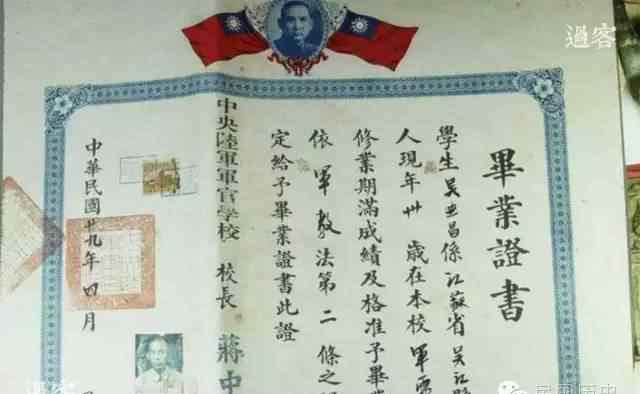 畢業證書
學生吳亞昌係江蘇省吳江縣
人現年卅歲在本校軍需
修業期滿成績及格准予畢業
依軍教法第二條之規
定給予畢業證書此證
中央陸軍軍官學校 校長 蔣中
中華民國廿九年四月
過客
過客
民國歷史